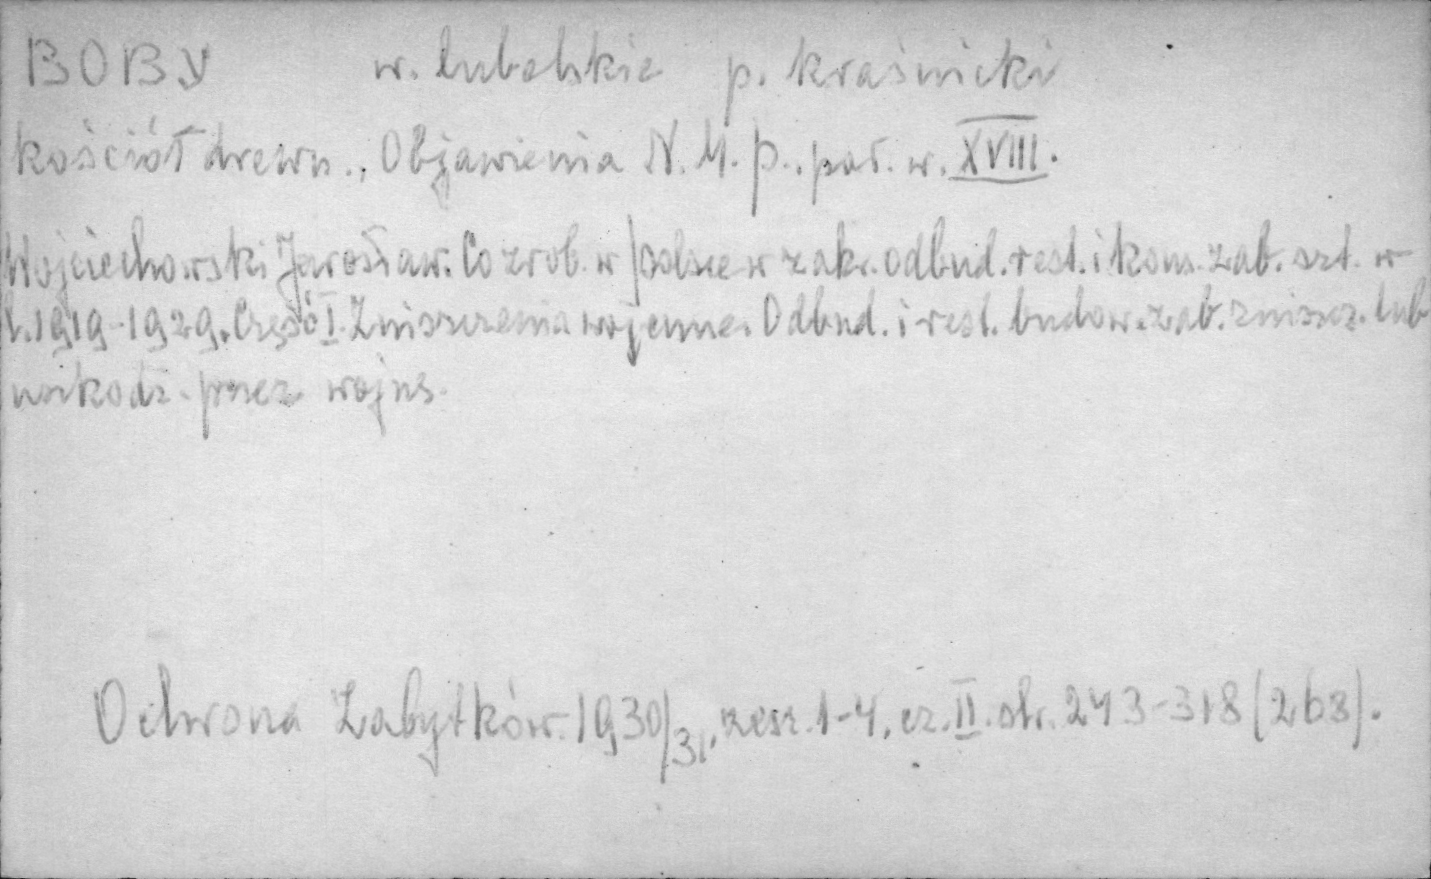 BOBY w. lubelskie p. kraśnicki
kościół drewn., Objawienia N. M. P., poł. w. XVIII.
Wojciechowski Jarosław. Co zrob. w Polsce w zakr. odbud. rest. i kons. zab. szt. w
l. 1919-1929. Część I. Zniszczenia wojenne. Odbud. i rest. budow. zab. zniszcz. lub
uszkodz. przez wojnę.
Ochrona Zabytków. 1930/31, zesz. 1-4, cz. II. str. 243-318 (268).